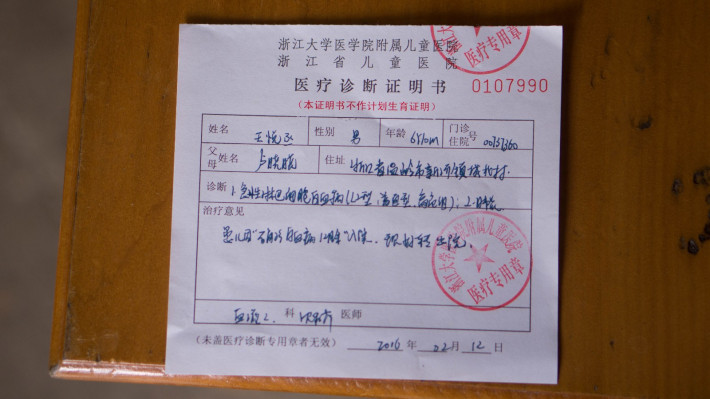 浙江大学医学院附属儿童医院
浙江省儿童医院
医疗诊断证明书
0107990
(本证明书不作计划生育证明)
姓名 王悦丞 性别 男 年龄 6Y10m 门诊住院号 00737360
父母姓名 卢晓晓 住址 浙江省温岭市新河镇
诊断 1.急性淋巴细胞白血病(L2型,高危组);2.
治疗意见
患儿因"白血病"入院.现好转出院.
血液2 科 医师
(未盖医疗诊断专用章者无效) 2016 年 02 月 12 日
医疗专用章
浙江大学医学院附属儿童医院
医疗专用章